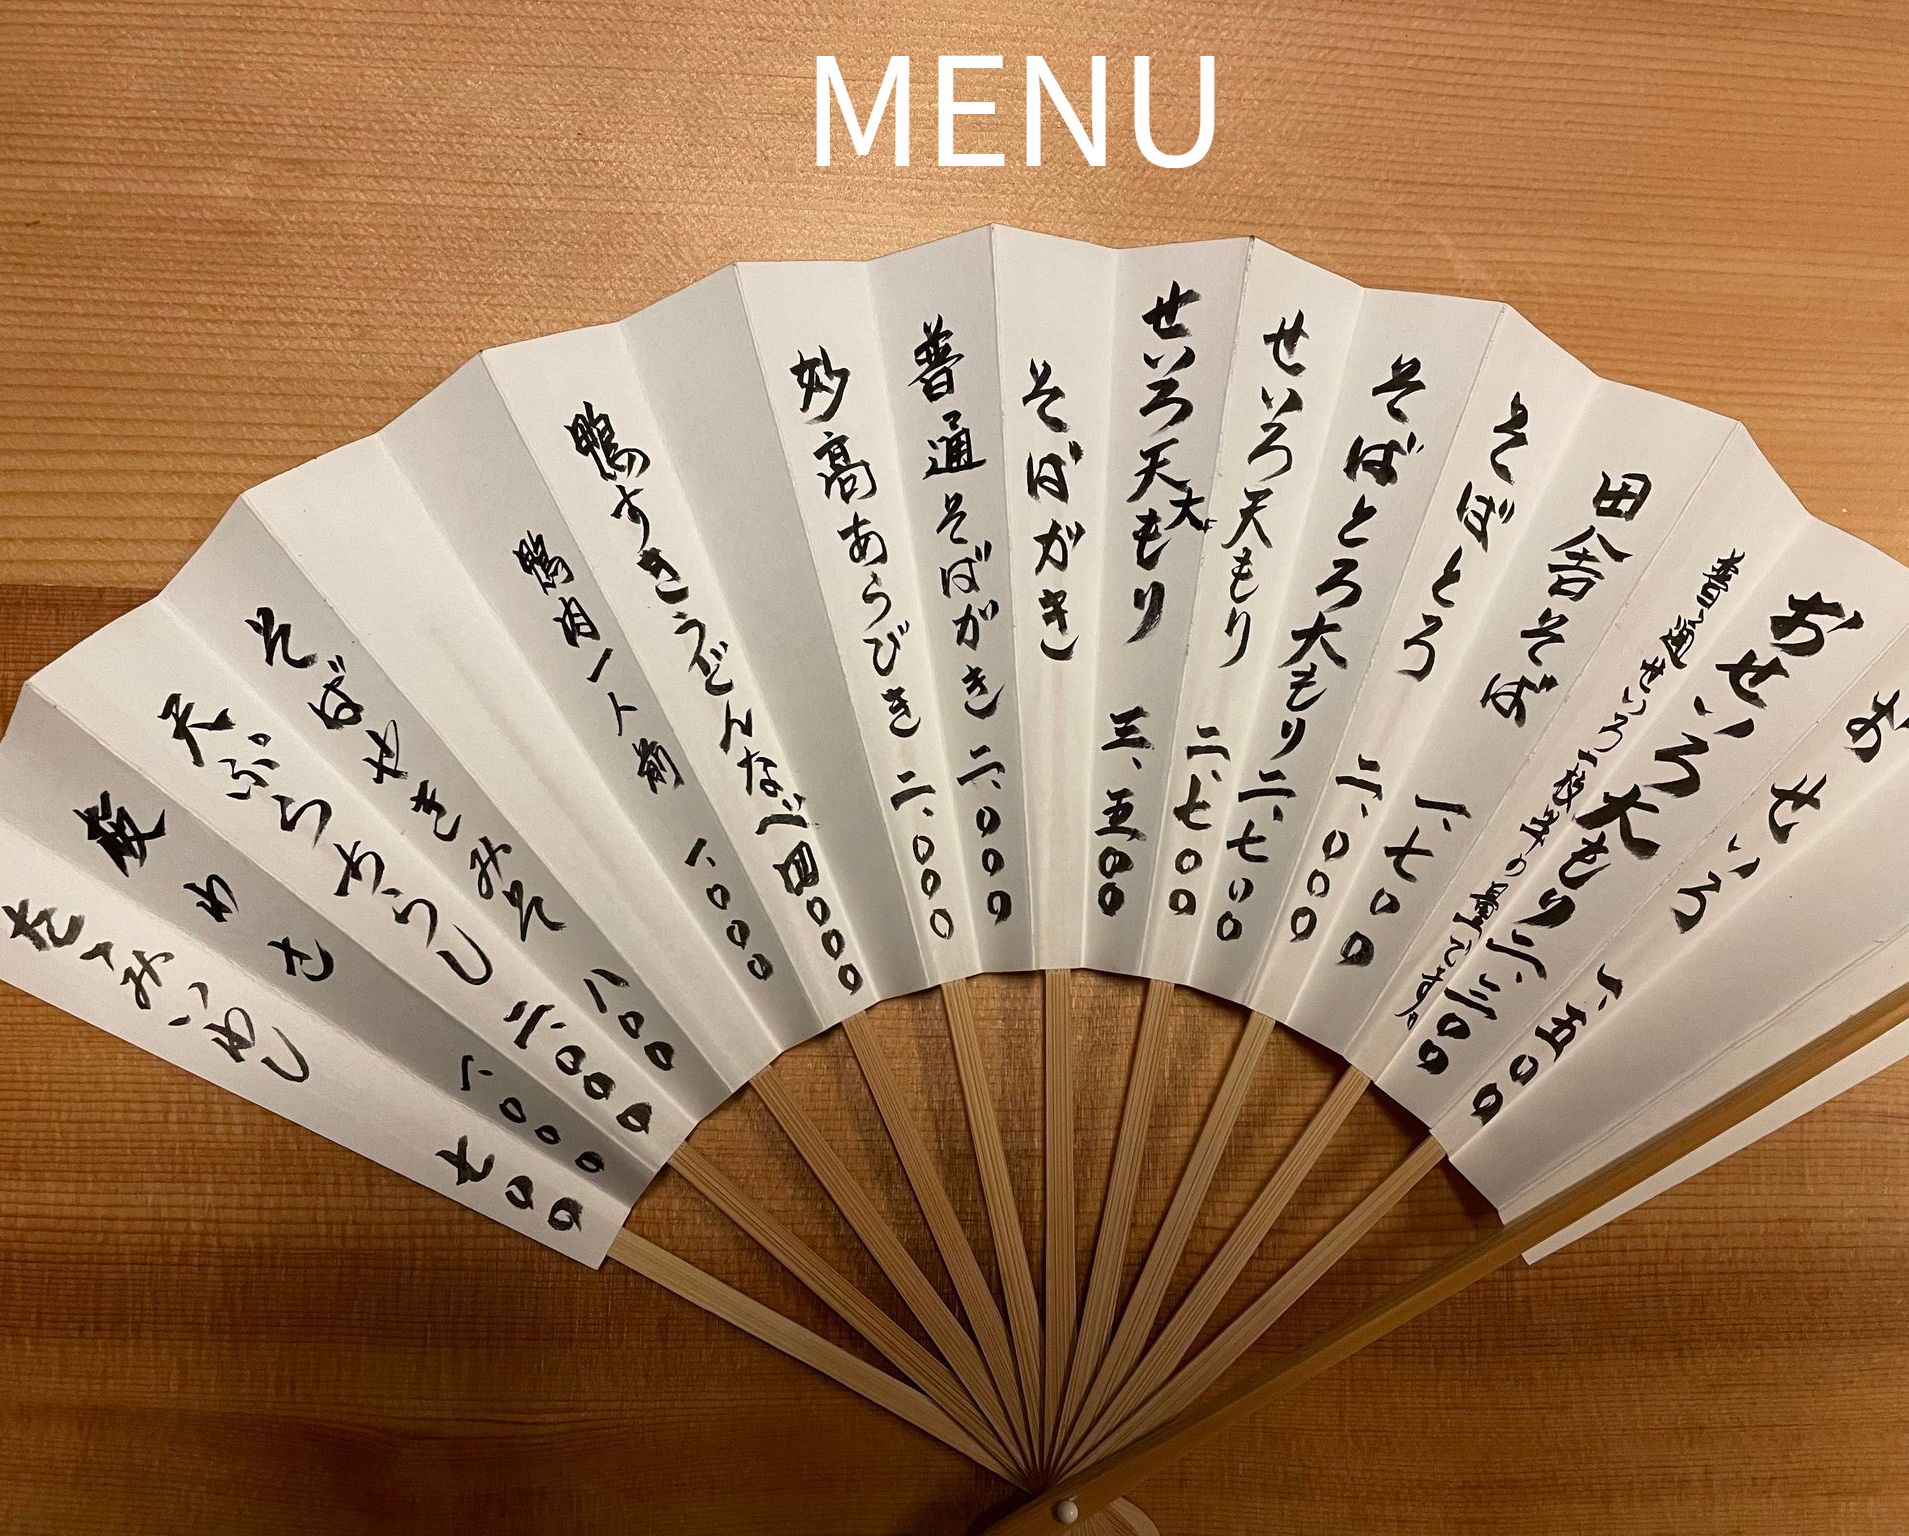 MENU
おせいろ 一、五〇〇
おせいろ大もり 二、三〇〇
普通せいろ一枚半の量です。
田舎そば 一、七〇〇
そばとろ 二、〇〇〇
そばとろ大もり 二、七〇〇
せいろ天もり 二、七〇〇
せいろ天大もり 三、五〇〇
そばがき
普通そばがき 二、〇〇〇
妙高あらびき 二、〇〇〇
鴨すきうどんなべ 四〇〇〇
鴨肉一人前 一、〇〇〇
そばやきみそ 八〇〇
天ぷらあらし 二、〇〇〇
一、〇〇〇
七〇〇